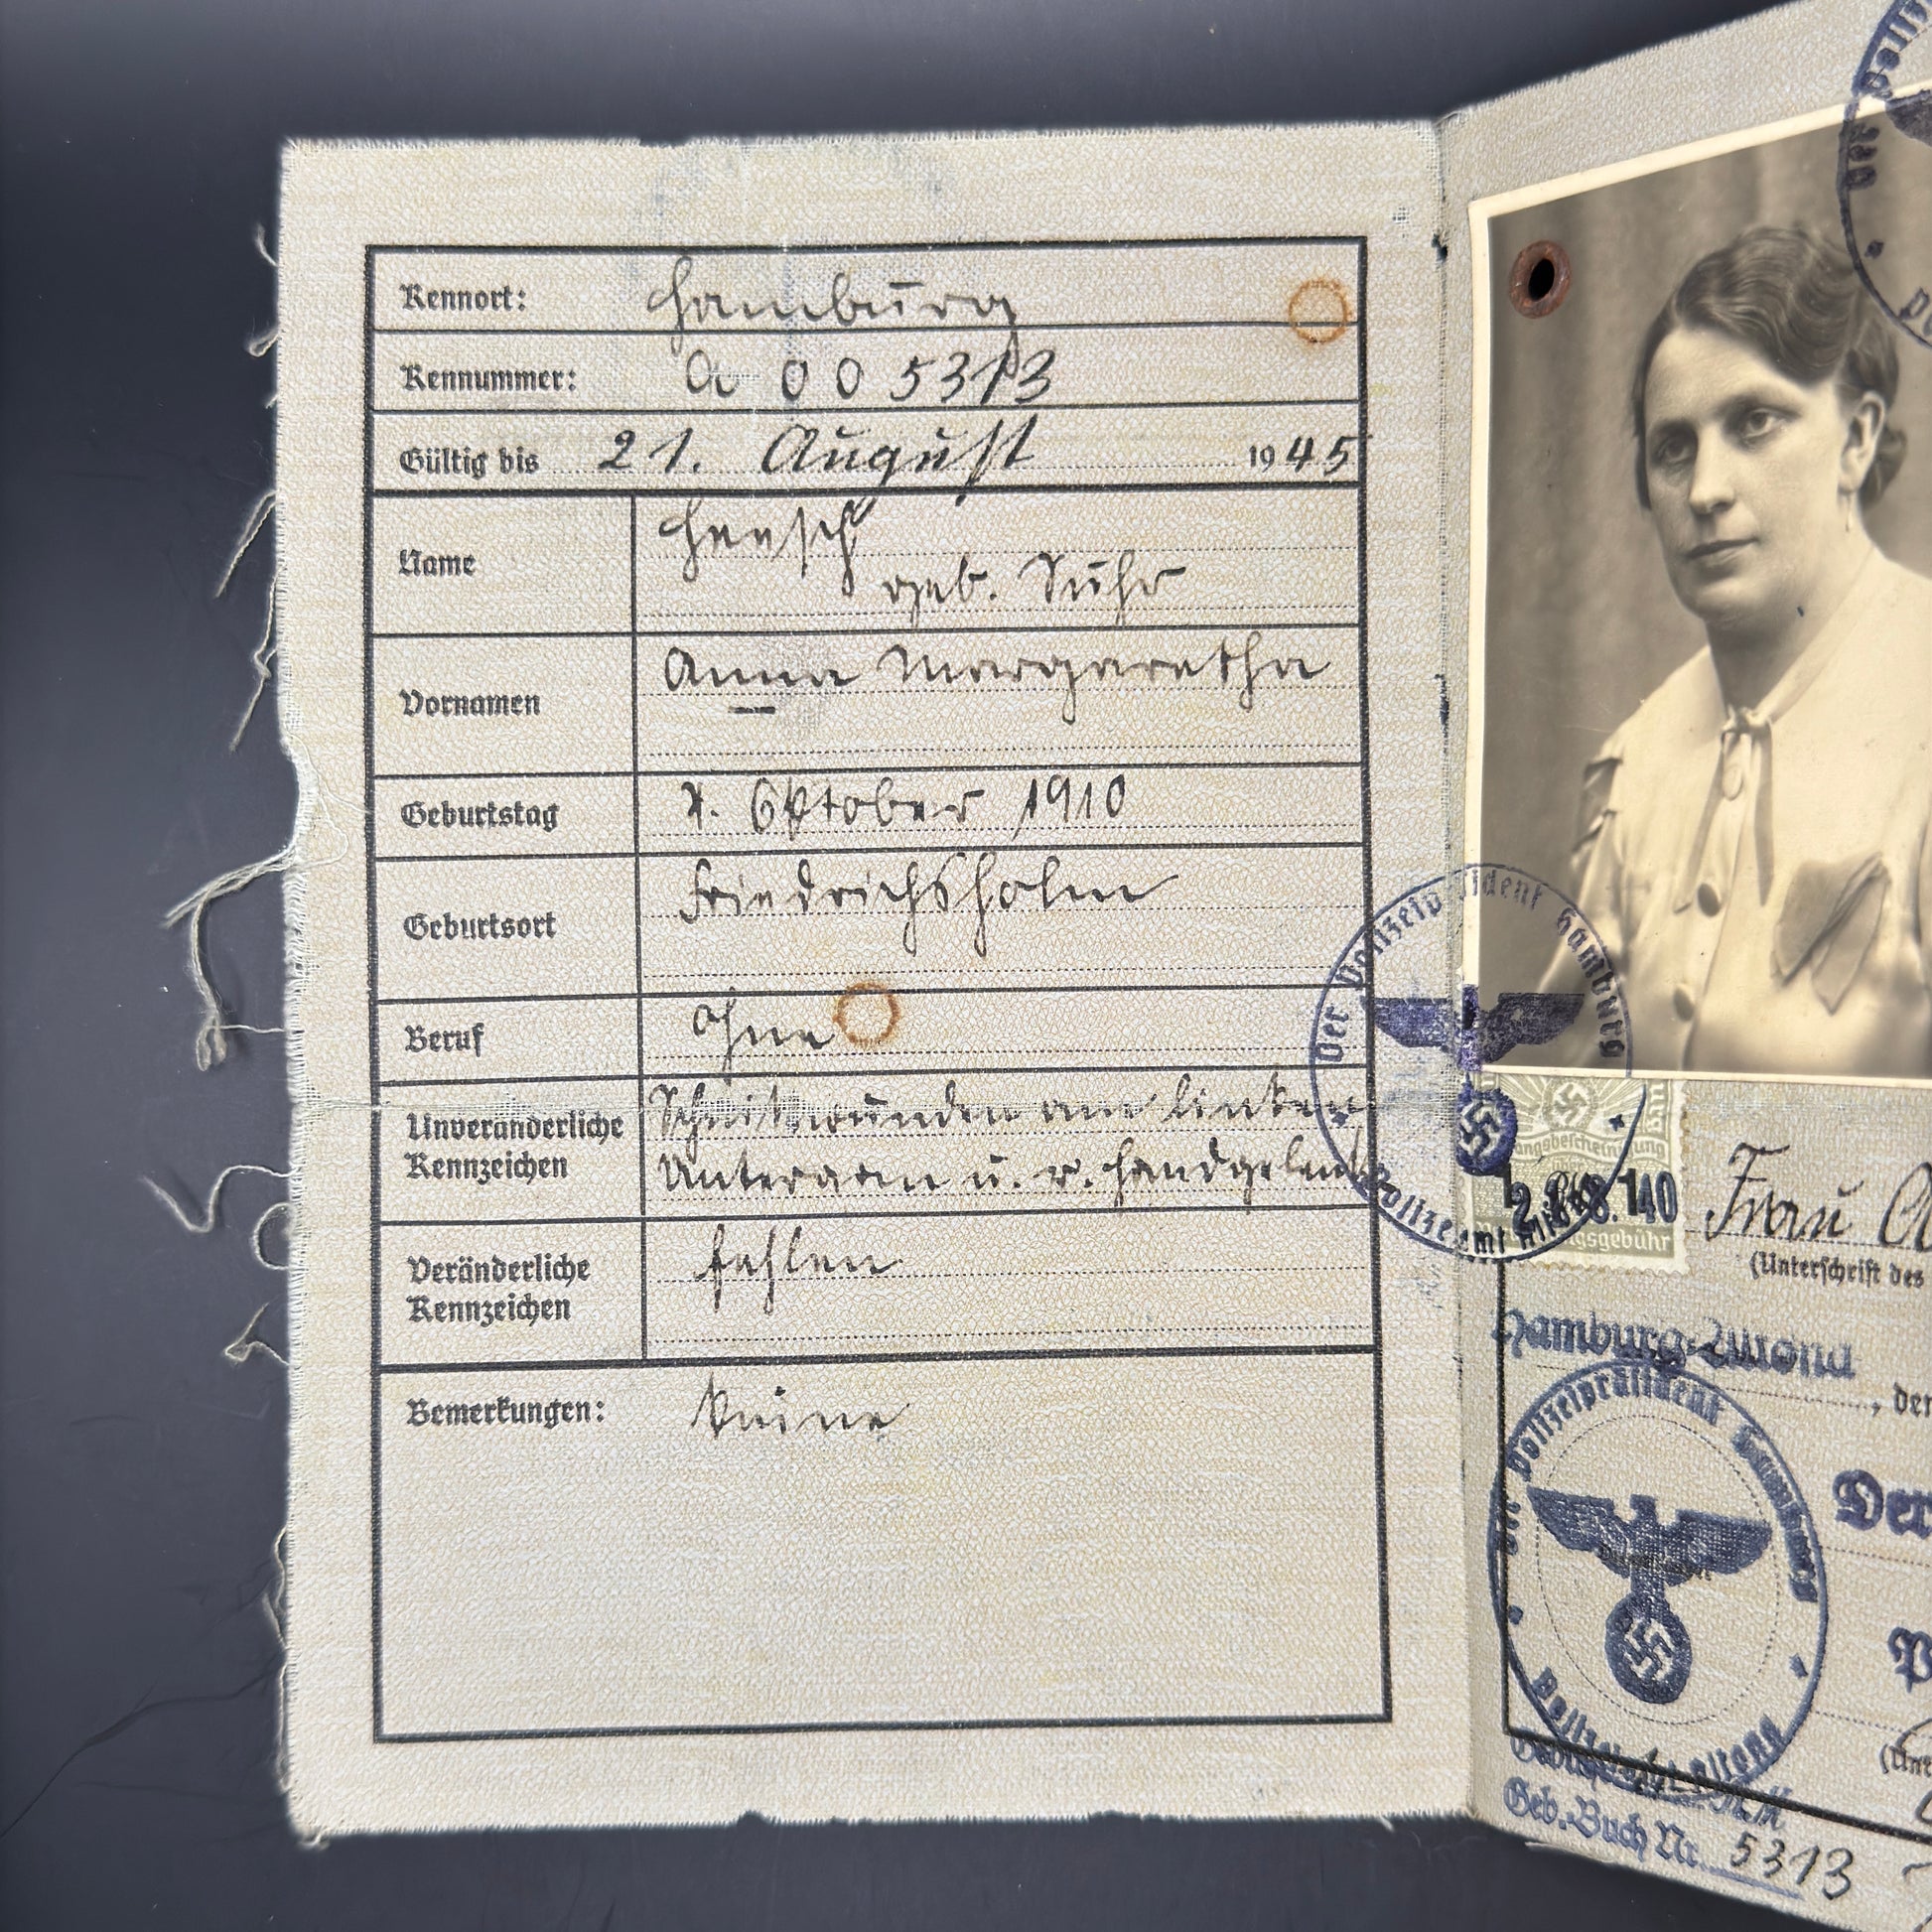 Kennort: Hamburg
Kennummer: A 005313
Gültig bis 21. August 1945
Name Heesch
geb. Suhr
Vornamen Anna Margaretha
Geburtstag 7. Oktober 1910
Geburtsort Friedrichsholm
Beruf ohne
Unveränderliche Kennzeichen Schnittwunden am linken
Unterarm u. r. Handgelenk
Veränderliche Kennzeichen fehlen
Bemerkungen: keine
Der Polizeipräsident Hamburg
Polizeiamt
40
gsgebühr
Frau
(Unterschrift des
Hamburg-Altona
, den
Der Polizeipräsident Hamburg
Polizeiamt Altona
Der
P
(Unte
Geb.-Buch Nr. 5313